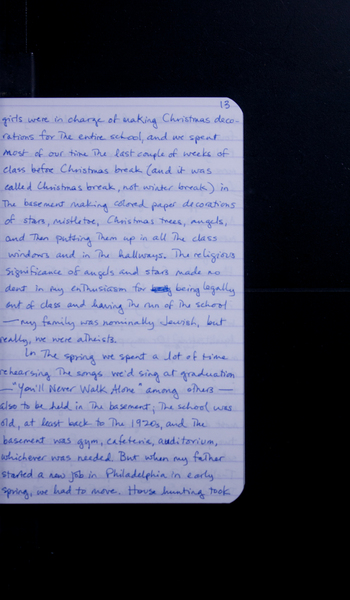 13
girls were in charge of making Christmas deco-
rations for the entire school, and we spent
most of our time the last couple of weeks of
class before Christmas break (and it was
called Christmas break, not winter break) in
the basement making colored paper decorations
of stars, mistletoe, Christmas trees, angels,
and then putting them up in all the class
windows and in the hallways. The religious
significance of angels and stars made no
dent in my enthusiasm for being legally
out of class and having the run of the school
— my family was nominally Jewish, but
really, we were atheists.
In the spring we spent a lot of time
rehearsing the songs we'd sing at graduation
— "You'll Never Walk Alone" among others —
also to be held in the basement; the school was
old, at least back to the 1920s, and the
basement was gym, cafeteria, auditorium,
whichever was needed. But when my father
started a new job in Philadelphia in early
spring, we had to move. House hunting took